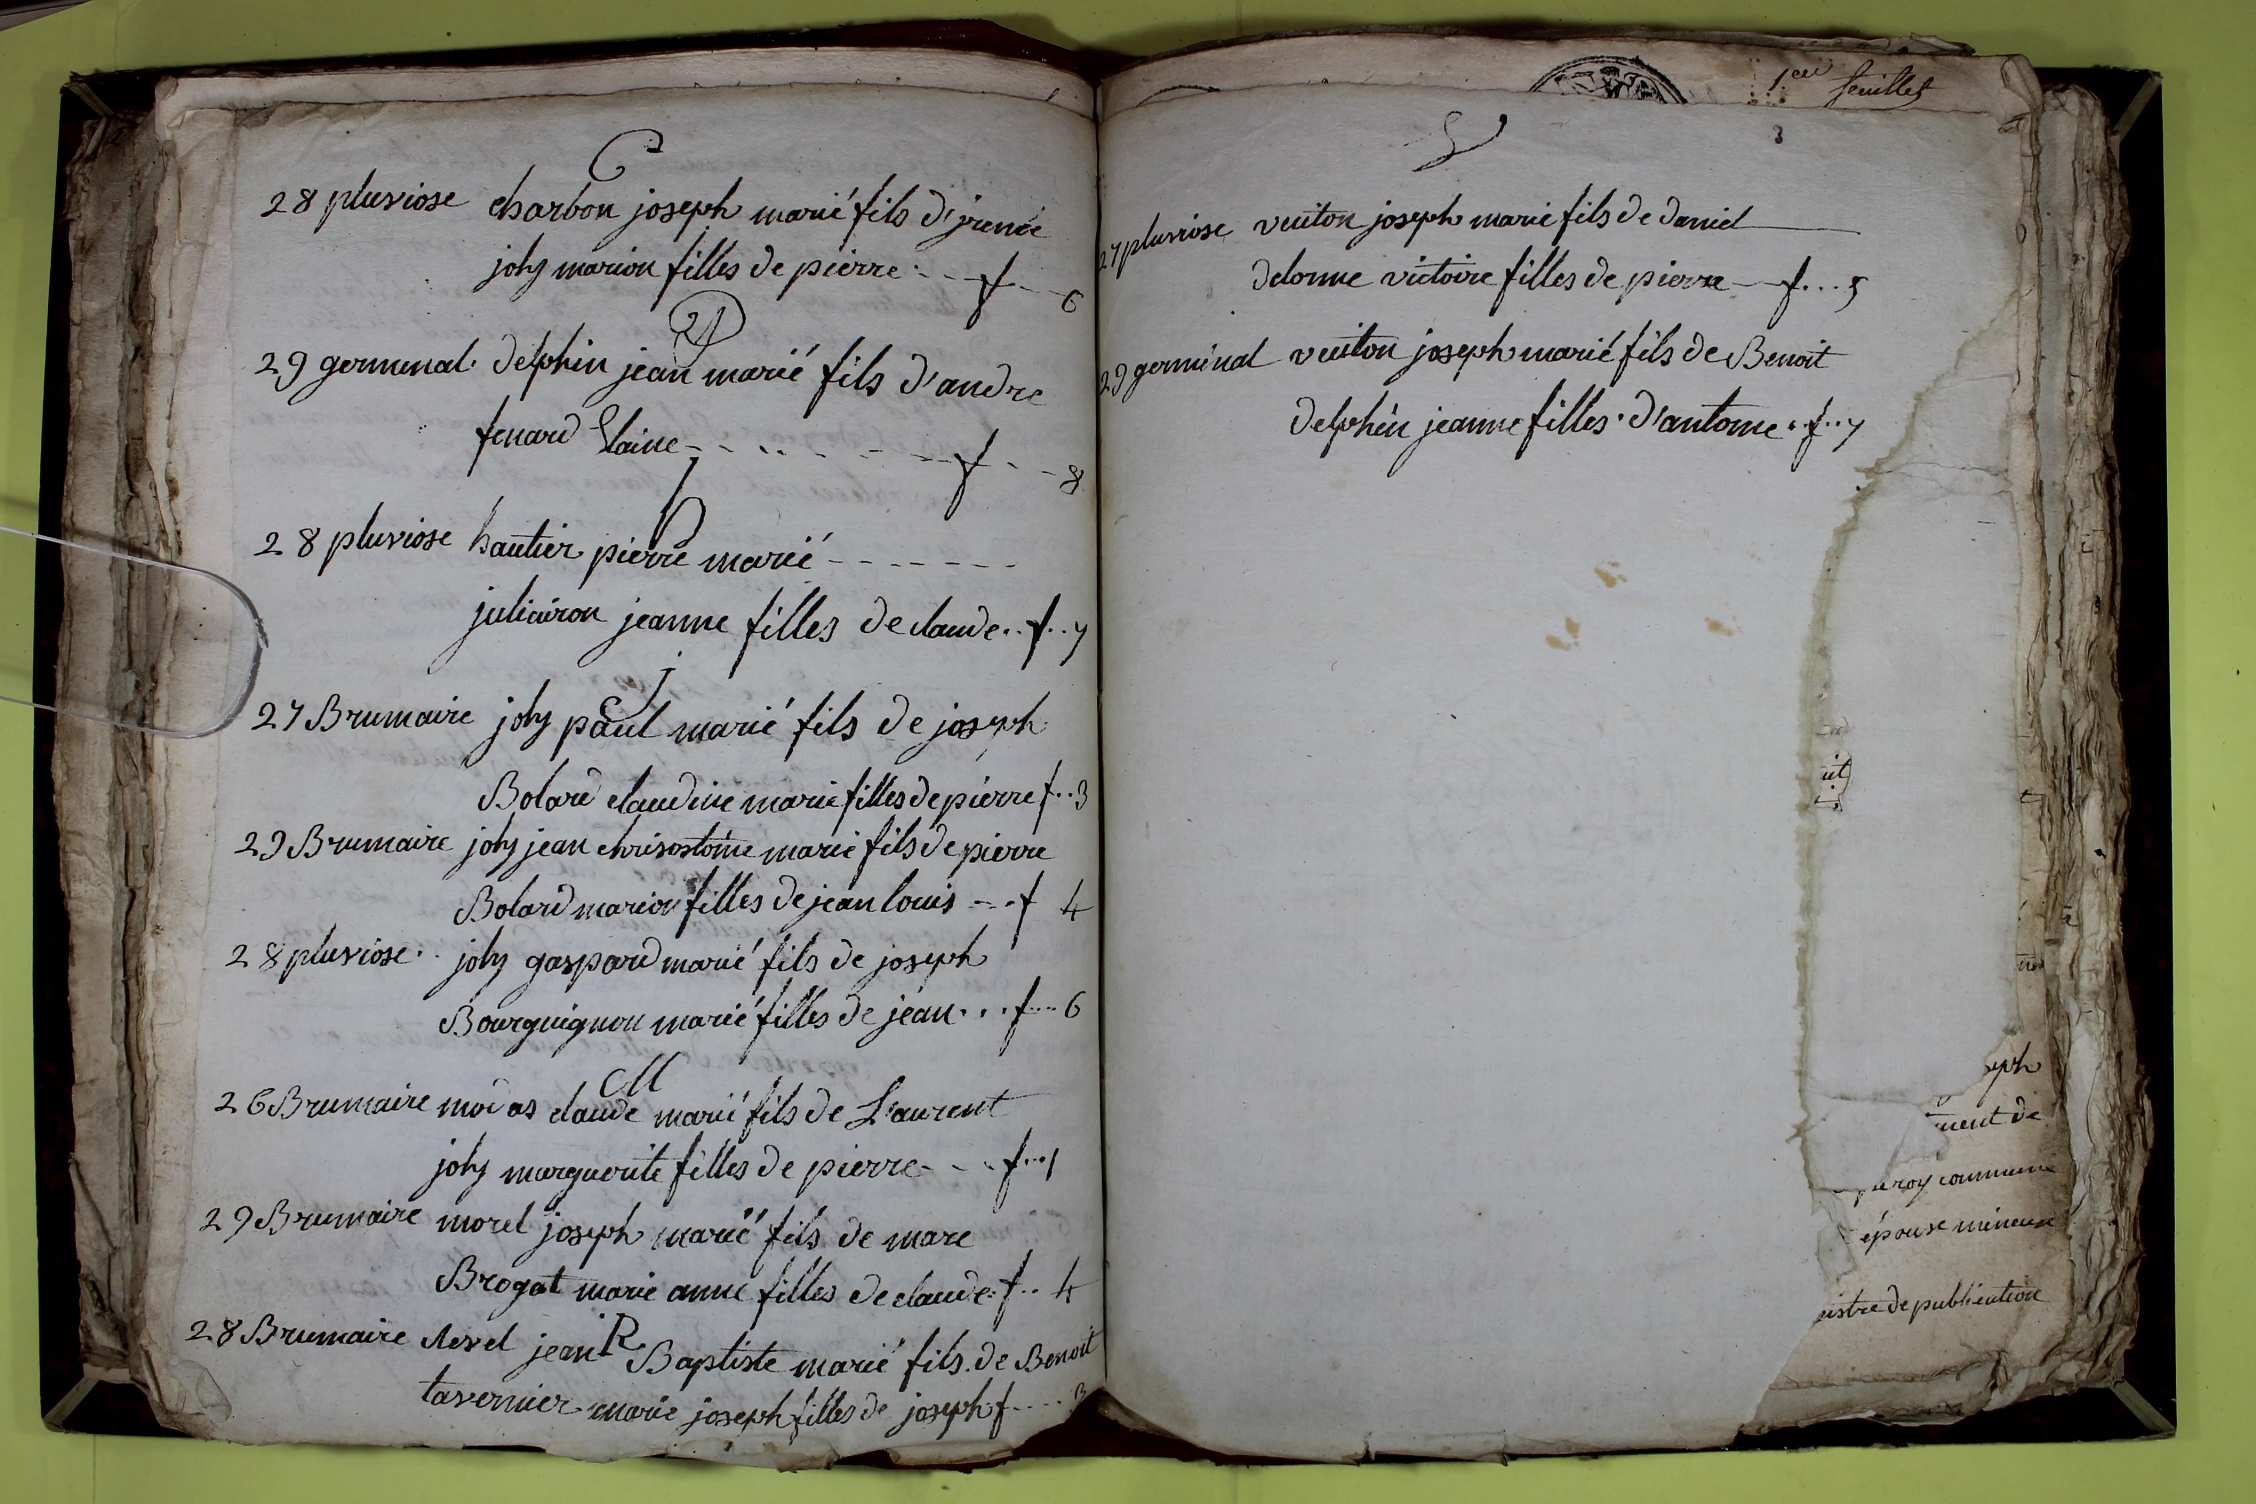 C
28 pluviose charbon joseph marié fils d'jrenée
joly marion filles de pierre f 6
D
29 germinal delphin jean marié fils d'andre
fenard laine f 8
h
28 pluviose hautier pierre marié
juliairon jeanne filles de claude f 7
j
27 Brumaire joly paul marié fils de joseph
Bolard claudine marie filles de pierre f 3
29 Brumaire joly jean chrisostome marié fils de pierre
Bolard marion filles de jean louis f 4
28 pluviose joly gaspard marié fils de joseph
Bourguignon marié filles de jean f 6
M
26 Brumaire modas claude marié fils de Laurent
joly marguerite filles de pierre f 1
29 Brumaire morel joseph marié fils de marc
Brogat marie anne filles de claude f 4
R
28 Brumaire revel jean Baptiste marié fils de Benoit
tavernier marie joseph filles de joseph f 3
1er feuillet
3
V
27 pluviose veuton joseph marié fils de daniel
delorme victoire filles de pierre f 5
29 germinal veuton joseph marié fils de Benoit
delphin jeanne filles d'antoine f 7
eph
ment de
roy commune
épouse mineure
istre de publication